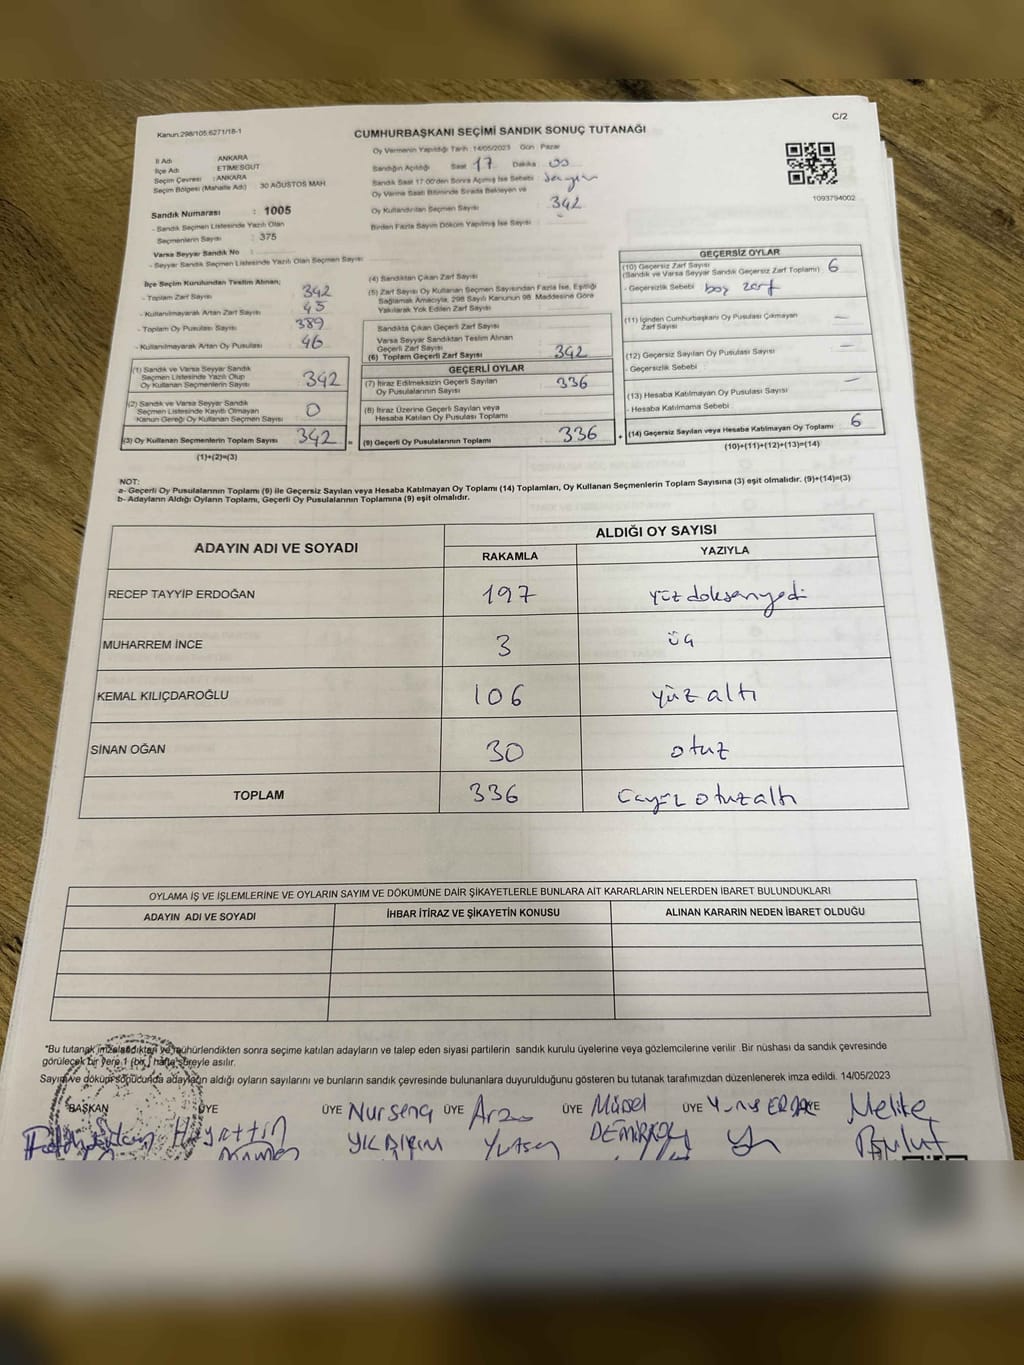 Kanun:298/105;6271/18-1
C/2
CUMHURBAŞKANI SEÇİMİ SANDIK SONUÇ TUTANAĞI
İl Adı ANKARA
İlçe Adı ETİMESGUT
Seçim Çevresi : ANKARA
Seçim Bölgesi (Mahalle Adı) 30 AĞUSTOS MAH
Sandık Numarası : 1005
- Sandık Seçmen Listesinde Yazılı Olan
Seçmenlerin Sayısı : 375
Varsa Seyyar Sandık No :
- Seyyar Sandık Seçmen Listesinde Yazılı Olan Seçmen Sayısı
Oy Vermenin Yapıldığı Tarih :14/05/2023 Gün Pazar
Sandığın Açıldığı Saat 17 Dakika 00
Sandık Saat 17:00'den Sonra Açılmış İse Sebebi
Oy Verme Saati Bitiminde Sırada Bekleyen ve
Oy Kullandırılan Seçmen Sayısı 342
Birden Fazla Sayım Döküm Yapılmış İse Sayısı
1093794002
İlçe Seçim Kurulundan Teslim Alınan;
- Toplam Zarf Sayısı 342
- Kullanılmayarak Artan Zarf Sayısı 45
- Toplam Oy Pusulası Sayısı 389
- Kullanılmayarak Artan Oy Pusulası 46
(1) Sandık ve Varsa Seyyar Sandık
Seçmen Listesinde Yazılı Olup
Oy Kullanan Seçmenlerin Sayısı 342
(2) Sandık ve Varsa Seyyar Sandık
Seçmen Listesinde Kayıtlı Olmayan
Kanun Gereği Oy Kullanan Seçmen Sayısı 0
(3) Oy Kullanan Seçmenlerin Toplam Sayısı 342 =
(1)+(2)=(3)
(4) Sandıktan Çıkan Zarf Sayısı :
(5) Zarf Sayısı Oy Kullanan Seçmen Sayısından Fazla İse, Eşitliği
Sağlamak Amacıyla, 298 Sayılı Kanunun 98. Maddesine Göre
Yakılarak Yok Edilen Zarf Sayısı
Sandıkta Çıkan Geçerli Zarf Sayısı
Varsa Seyyar Sandıktan Teslim Alınan
Geçerli Zarf Sayısı
(6) Toplam Geçerli Zarf Sayısı 342
GEÇERLİ OYLAR
(7) İtiraz Edilmeksizin Geçerli Sayılan
Oy Pusulalarının Sayısı 336
(8) İtiraz Üzerine Geçerli Sayılan veya
Hesaba Katılan Oy Pusulası Toplamı
(9) Geçerli Oy Pusulalarının Toplamı 336 +
GEÇERSİZ OYLAR
(10) Geçersiz Zarf Sayısı
(Sandık ve Varsa Seyyar Sandık Geçersiz Zarf Toplamı) 6
- Geçersizlik Sebebi boş zarf
(11) İçinden Cumhurbaşkanı Oy Pusulası Çıkmayan
Zarf Sayısı —
(12) Geçersiz Sayılan Oy Pusulası Sayısı —
- Geçersizlik Sebebi
(13) Hesaba Katılmayan Oy Pusulası Sayısı —
- Hesaba Katılmama Sebebi
(14) Geçersiz Sayılan veya Hesaba Katılmayan Oy Toplamı 6
(10)+(11)+(12)+(13)=(14)
NOT:
a- Geçerli Oy Pusulalarının Toplamı (9) ile Geçersiz Sayılan veya Hesaba Katılmayan Oy Toplamı (14) Toplamları, Oy Kullanan Seçmenlerin Toplam Sayısına (3) eşit olmalıdır. (9)+(14)=(3)
b- Adayların Aldığı Oyların Toplamı, Geçerli Oy Pusulalarının Toplamına (9) eşit olmalıdır.
ADAYIN ADI VE SOYADI
ALDIĞI OY SAYISI
RAKAMLA YAZIYLA
RECEP TAYYİP ERDOĞAN 197 yüzdoksanyedi
MUHARREM İNCE 3 üç
KEMAL KILIÇDAROĞLU 106 yüz altı
SİNAN OĞAN 30 otuz
TOPLAM 336 üçyüz otuzaltı
OYLAMA İŞ VE İŞLEMLERİNE VE OYLARIN SAYIM VE DÖKÜMÜNE DAİR ŞİKAYETLERLE BUNLARA AİT KARARLARIN NELERDEN İBARET BULUNDUKLARI
ADAYIN ADI VE SOYADI İHBAR İTİRAZ VE ŞİKAYETİN KONUSU ALINAN KARARIN NEDEN İBARET OLDUĞU
*Bu tutanak imzalandıktan ve mühürlendikten sonra seçime katılan adayların ve talep eden siyasi partilerin sandık kurulu üyelerine veya gözlemcilerine verilir .Bir nüshası da sandık çevresinde
görülecek bir yere 1 (bir) hafta süreyle asılır.
Sayım ve döküm sonucunda adayların aldığı oyların sayılarını ve bunların sandık çevresinde bulunanlara duyurulduğunu gösteren bu tutanak tarafımızdan düzenlenerek imza edildi. 14/05/2023
BAŞKAN ÜYE ÜYE Nursena ÜYE Arzu ÜYE Mürsel ÜYE Yunus Melike
Hayattin YILDIRIM DEMİRKOL Bulut